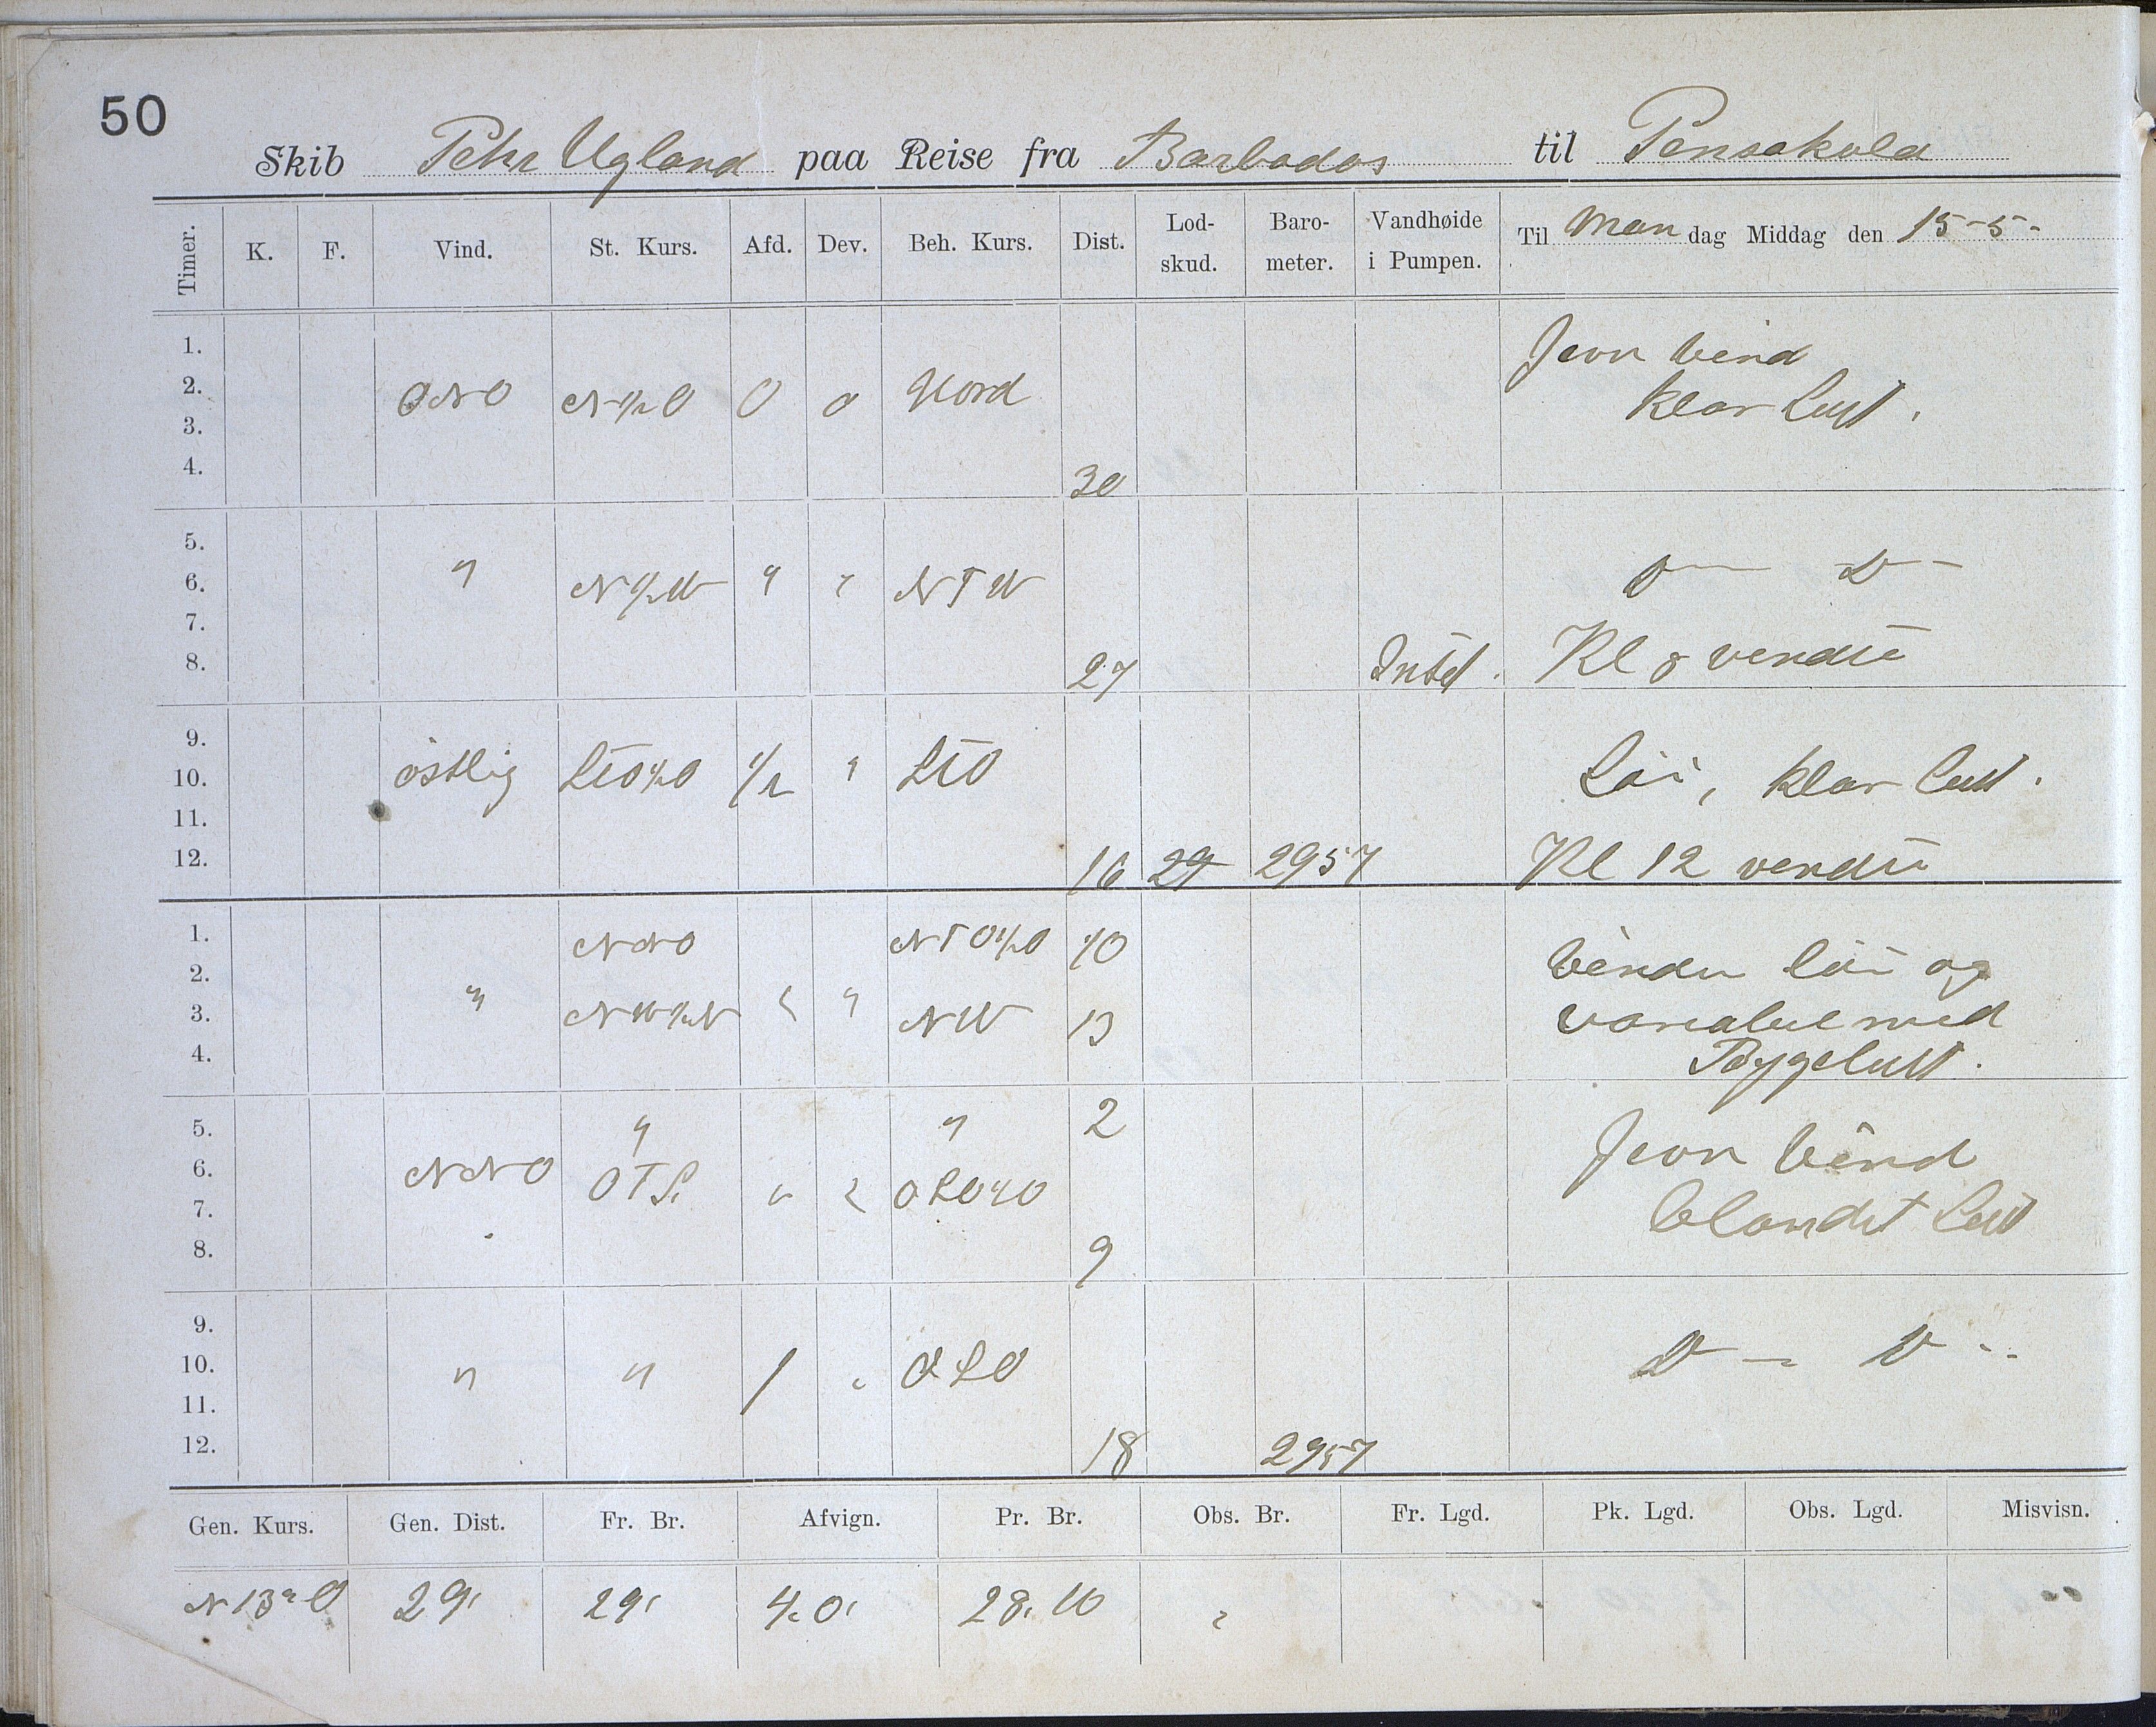 50
Skib Peter Ugland paa Reise fra Barbados til Pensakola
Timer. K. F. Vind. St. Kurs. Afd. Dev. Beh. Kurs. Dist. Lodskud. Barometer. Vandhøide i Pumpen. Til Mandag Middag den 15-5-
1. Jevn vind
2. ONO N½O 0 0 Nord klar Luft.
3.
4. 30
5.
6. " N½W " " NTW D— D—
7.
8. 27 Intet. Kl 8 vendte
9.
10. östlig STO½O ½ " STO Löi, klar luft.
11.
12. 16 29 2957 Kl 12 vendte
1. NNO NTO½O 10 Vinden löi og
2. "
3. NW½N " " NW 13 variabel med
4. Bygeluft.
5. " " 2 Jevn Vind
6. NNO OTS. " " OSO½O
7. blandet Luft
8. 9
9.
10. " " 1 " OSO D — D --
11.
12. 18 2957
Gen. Kurs. Gen. Dist. Fr. Br. Afvign. Pr. Br. Obs. Br. Fr. Lgd. Pk. Lgd. Obs. Lgd. Misvisn.
N13°O 29' 29' 28.10 "